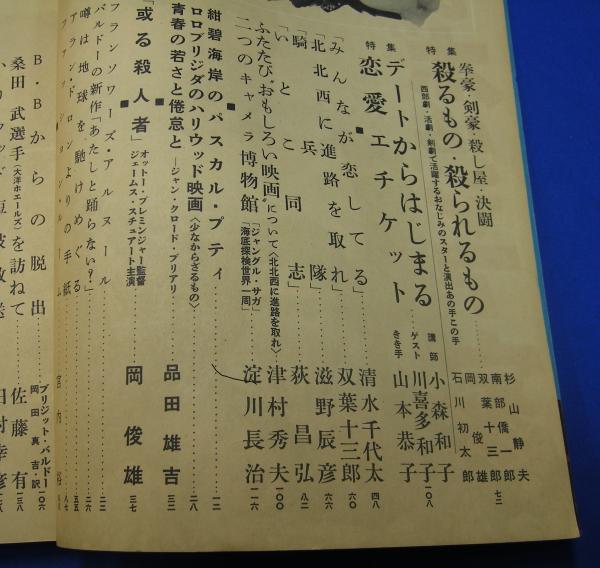 特集
拳豪・剣豪・殺し屋・決闘
殺るもの・殺られるもの
西部劇・活劇・剣劇で活躍するおなじみのスターと演出あの手この手
杉山静夫
南部僑一郎
双葉十三郎
岡俊雄
石川初太郎
七二
特集
デートからはじまる
恋愛エチケット
講師 小森和子
ゲスト 川喜多和子
きき手 山本恭子
一〇八
「みんなが恋してる」 清水千代太 四八
「北北西に進路を取れ」 双葉十三郎 六六
「騎兵隊」 滋野辰彦 六六
「いとこ同志」 荻昌弘 八二
ふたたび“おもしろい映画”について〈北北西に進路を取れ〉 津村秀夫 一〇〇
二つのキャメラ博物館 「ジャングル・サガ」「海底探検世界一周」 淀川長治 一一六
■
紺碧海岸のパスカル・プティ 一二
ロロブリジダのハリウッド映画〈少なからざるもの〉 二八
青春の若さと倦怠と―ジャン・クロード・ブリアリ 品田雄吉 三二
■
「或る殺人者」 オットー・プレミンジャー監督 ジェームス・スチュアート主演 岡俊雄 三七
■
フランソワーズ・アルヌール 二三
バルドーの新作「あたしと踊らない?」 二六
噂は地球を馳けめぐる 五五
アラン・ドロンよりの手紙
B・Bからの脱出 ブリジット・バルドー 岡田真吉・訳 一〇六
桑田武選手(大洋ホエールズ)を訪ねて 佐藤有 一三八